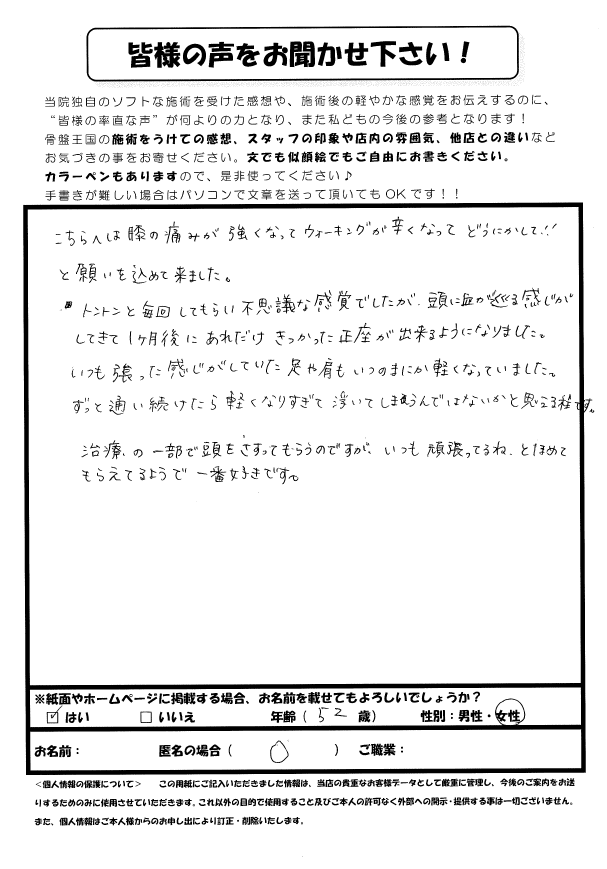 皆様の声をお聞かせ下さい！
当院独自のソフトな施術を受けた感想や、施術後の軽やかな感覚をお伝えするのに、
“皆様の率直な声”が何よりの力となり、また私どもの今後の参考となります！
骨盤王国の施術をうけての感想、スタッフの印象や店内の雰囲気、他店との違いなど
お気づきの事をお寄せください。文でも似顔絵でもご自由にお書きください。
カラーペンもありますので、是非使ってください♪
手書きが難しい場合はパソコンで文章を送って頂いてもOKです！！
こちらへは膝の痛みが強くなってウォーキングが辛くなってどうにかして!!
と願いを込めて来ました。
トントンと毎回してもらい不思議な感覚でしたが、頭に血が巡る感じが
してきて1ヶ月後にあれだけきつかった正座が出来るようになりました。
いつも張った感じがしていた足や肩もいつのまにか軽くなっていました。
ずっと通い続けたら軽くなりすぎて浮いてしまうんではないかと思える程です。
治療の一部で頭をさすってもらうのですが、いつも頑張ってるね、とほめて
もらえてるようで一番好きです。
※紙面やホームページに掲載する場合、お名前を載せてもよろしいでしょうか？
☑はい □いいえ 年齢（52歳） 性別：男性・女性
お名前： 匿名の場合（ ○ ） ご職業：
＜個人情報の保護について＞ この用紙にご記入いただきました情報は、当店の貴重なお客様データとして厳重に管理し、今後のご案内をお送
りするためのみに使用させていただきます。これ以外の目的で使用すること及びご本人の許可なく外部への開示・提供する事は一切ございません。
また、個人情報はご本人様からのお申し出により訂正・削除いたします。